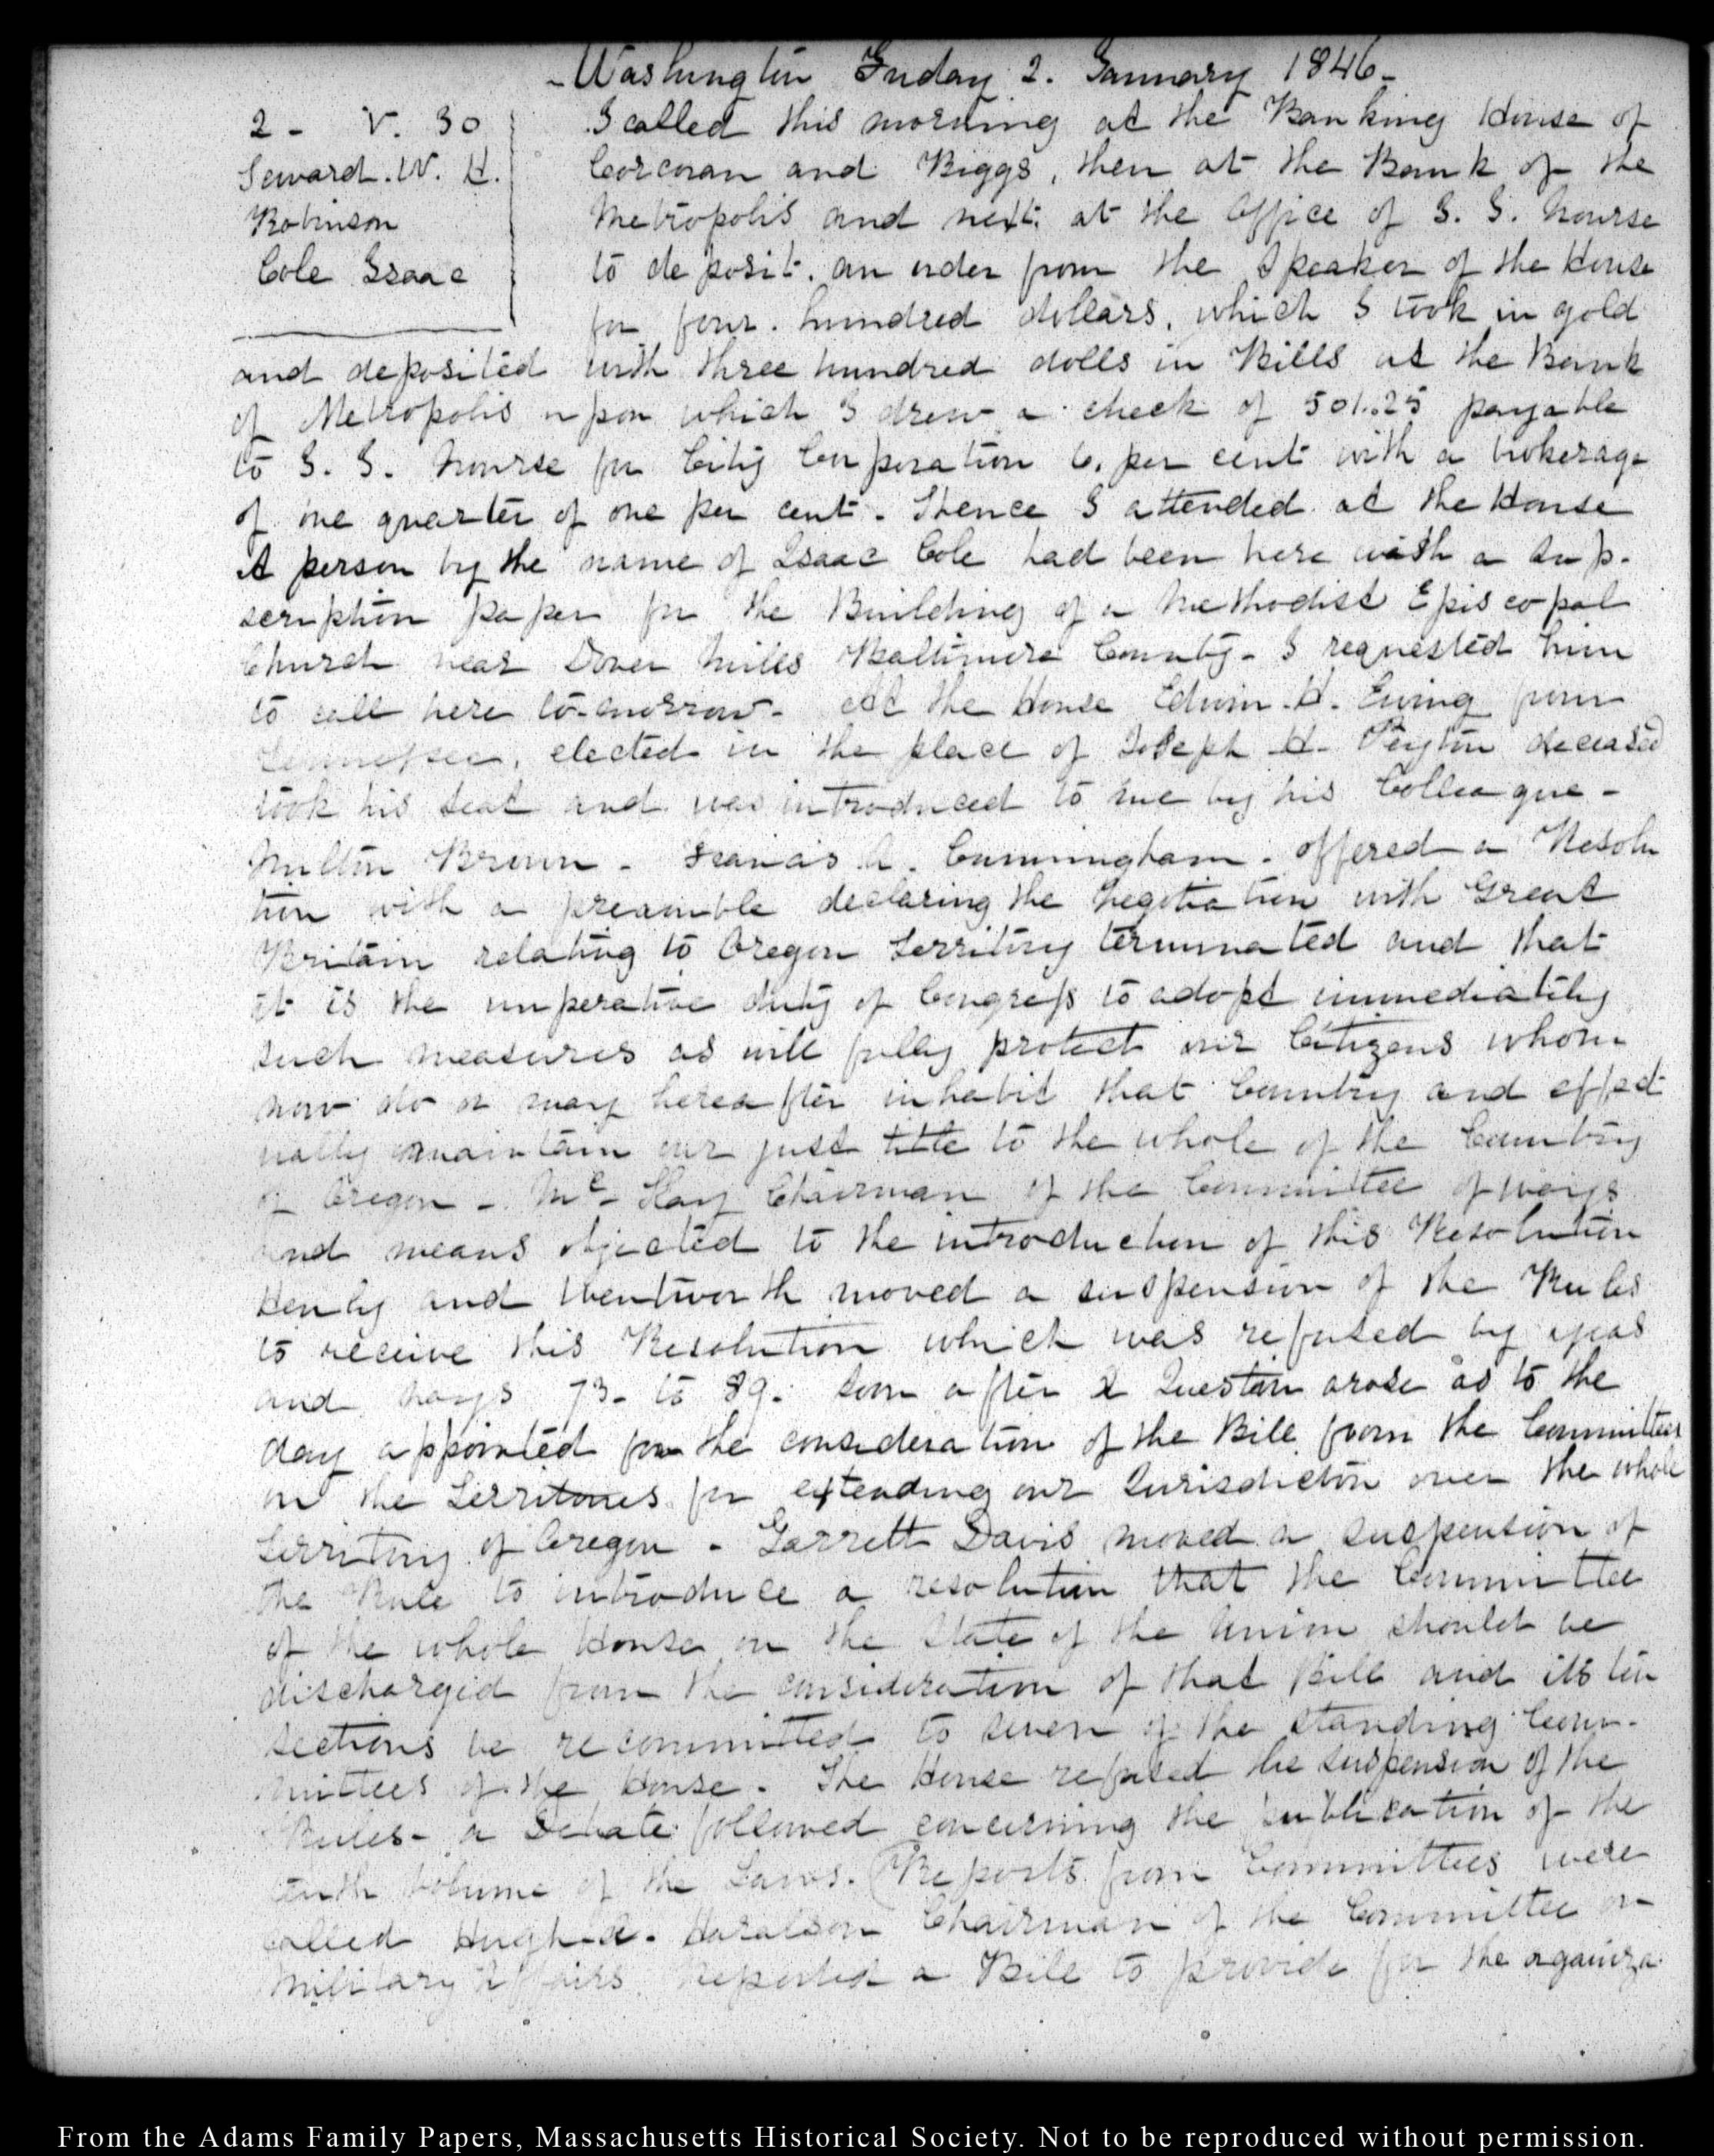 Washington Friday 2. January 1846-
2 - V. 30
Seward. W. H.
Robinson
Cole Isaac
I called this morning at the Banking House of
Corcoran and Biggs, then at the Bank of the
Metropolis and next. at the Office of I. I. Nourse
to deposit. an order from the Speaker of the House
for four. hundred dollars, which I took in gold
and deposited with three hundred dolls in Bills at the Bank
of Metropolis upon which I drew a check of 501..25 payable
to I. I. Nourse for City Corporation 6. per cent with a brokerage
of one quarter of one per cent. Thence I attended at the House
A person by the name of Isaac Cole had been here with a sup-
scription paper for the Building of a Methodist Episcopal
Church near Dover Mills Baltimore County- I requested him
to call here to-morrow- At the House Edwin. H. Ewing from
Tennessee, elected in the place of Joseph H. Peyton deceased
took his seat and was introduced to me by his Colleague -
Milton Brown - Francis A. Cunningham. offered a Resolu
tion with a preamble declaring the negotiation with Great
Britain relating to Oregon Territory terminated and that
it is the imperative duty of Congress to adopt immediately
such measures as will fully protect our Citizens whom
now do or may hereafter inhabit that Country and effect
ually maintain our just title to the whole of the Country
of Oregon - Mc. Kay Chairman of the Committee of ways
and means objected to the introduction of this Resolution
Henly and Wentworth moved a suspension of the Rules
to receive this Resolution which was refused by yeas
and nays 73- to 89. Soon after a Question arose as to the
day appointed for the consideration of the Bill from the Committee
on the Territories for extending our Jurisdiction over the whole
Territory of Oregon - Garrett Davis moved a suspension of
the Rule to introduce a resolution that the Committee
of the whole House on the State of the Union should be
discharged from the consideration of that Bill and its ten
sections be recommitted to seven of the standing Com-
mittees of the House. The House refused the suspension of the
Rules- a Debate followed concerning the publication of the
tenth volume of the Laws. (Reports from Committees were
called Hugh A. Haralson Chairman of the Committee on
Military Affairs. Reported a Bill to provide for the organiza-
From the Adams Family Papers, Massachusetts Historical Society. Not to be reproduced without permission.